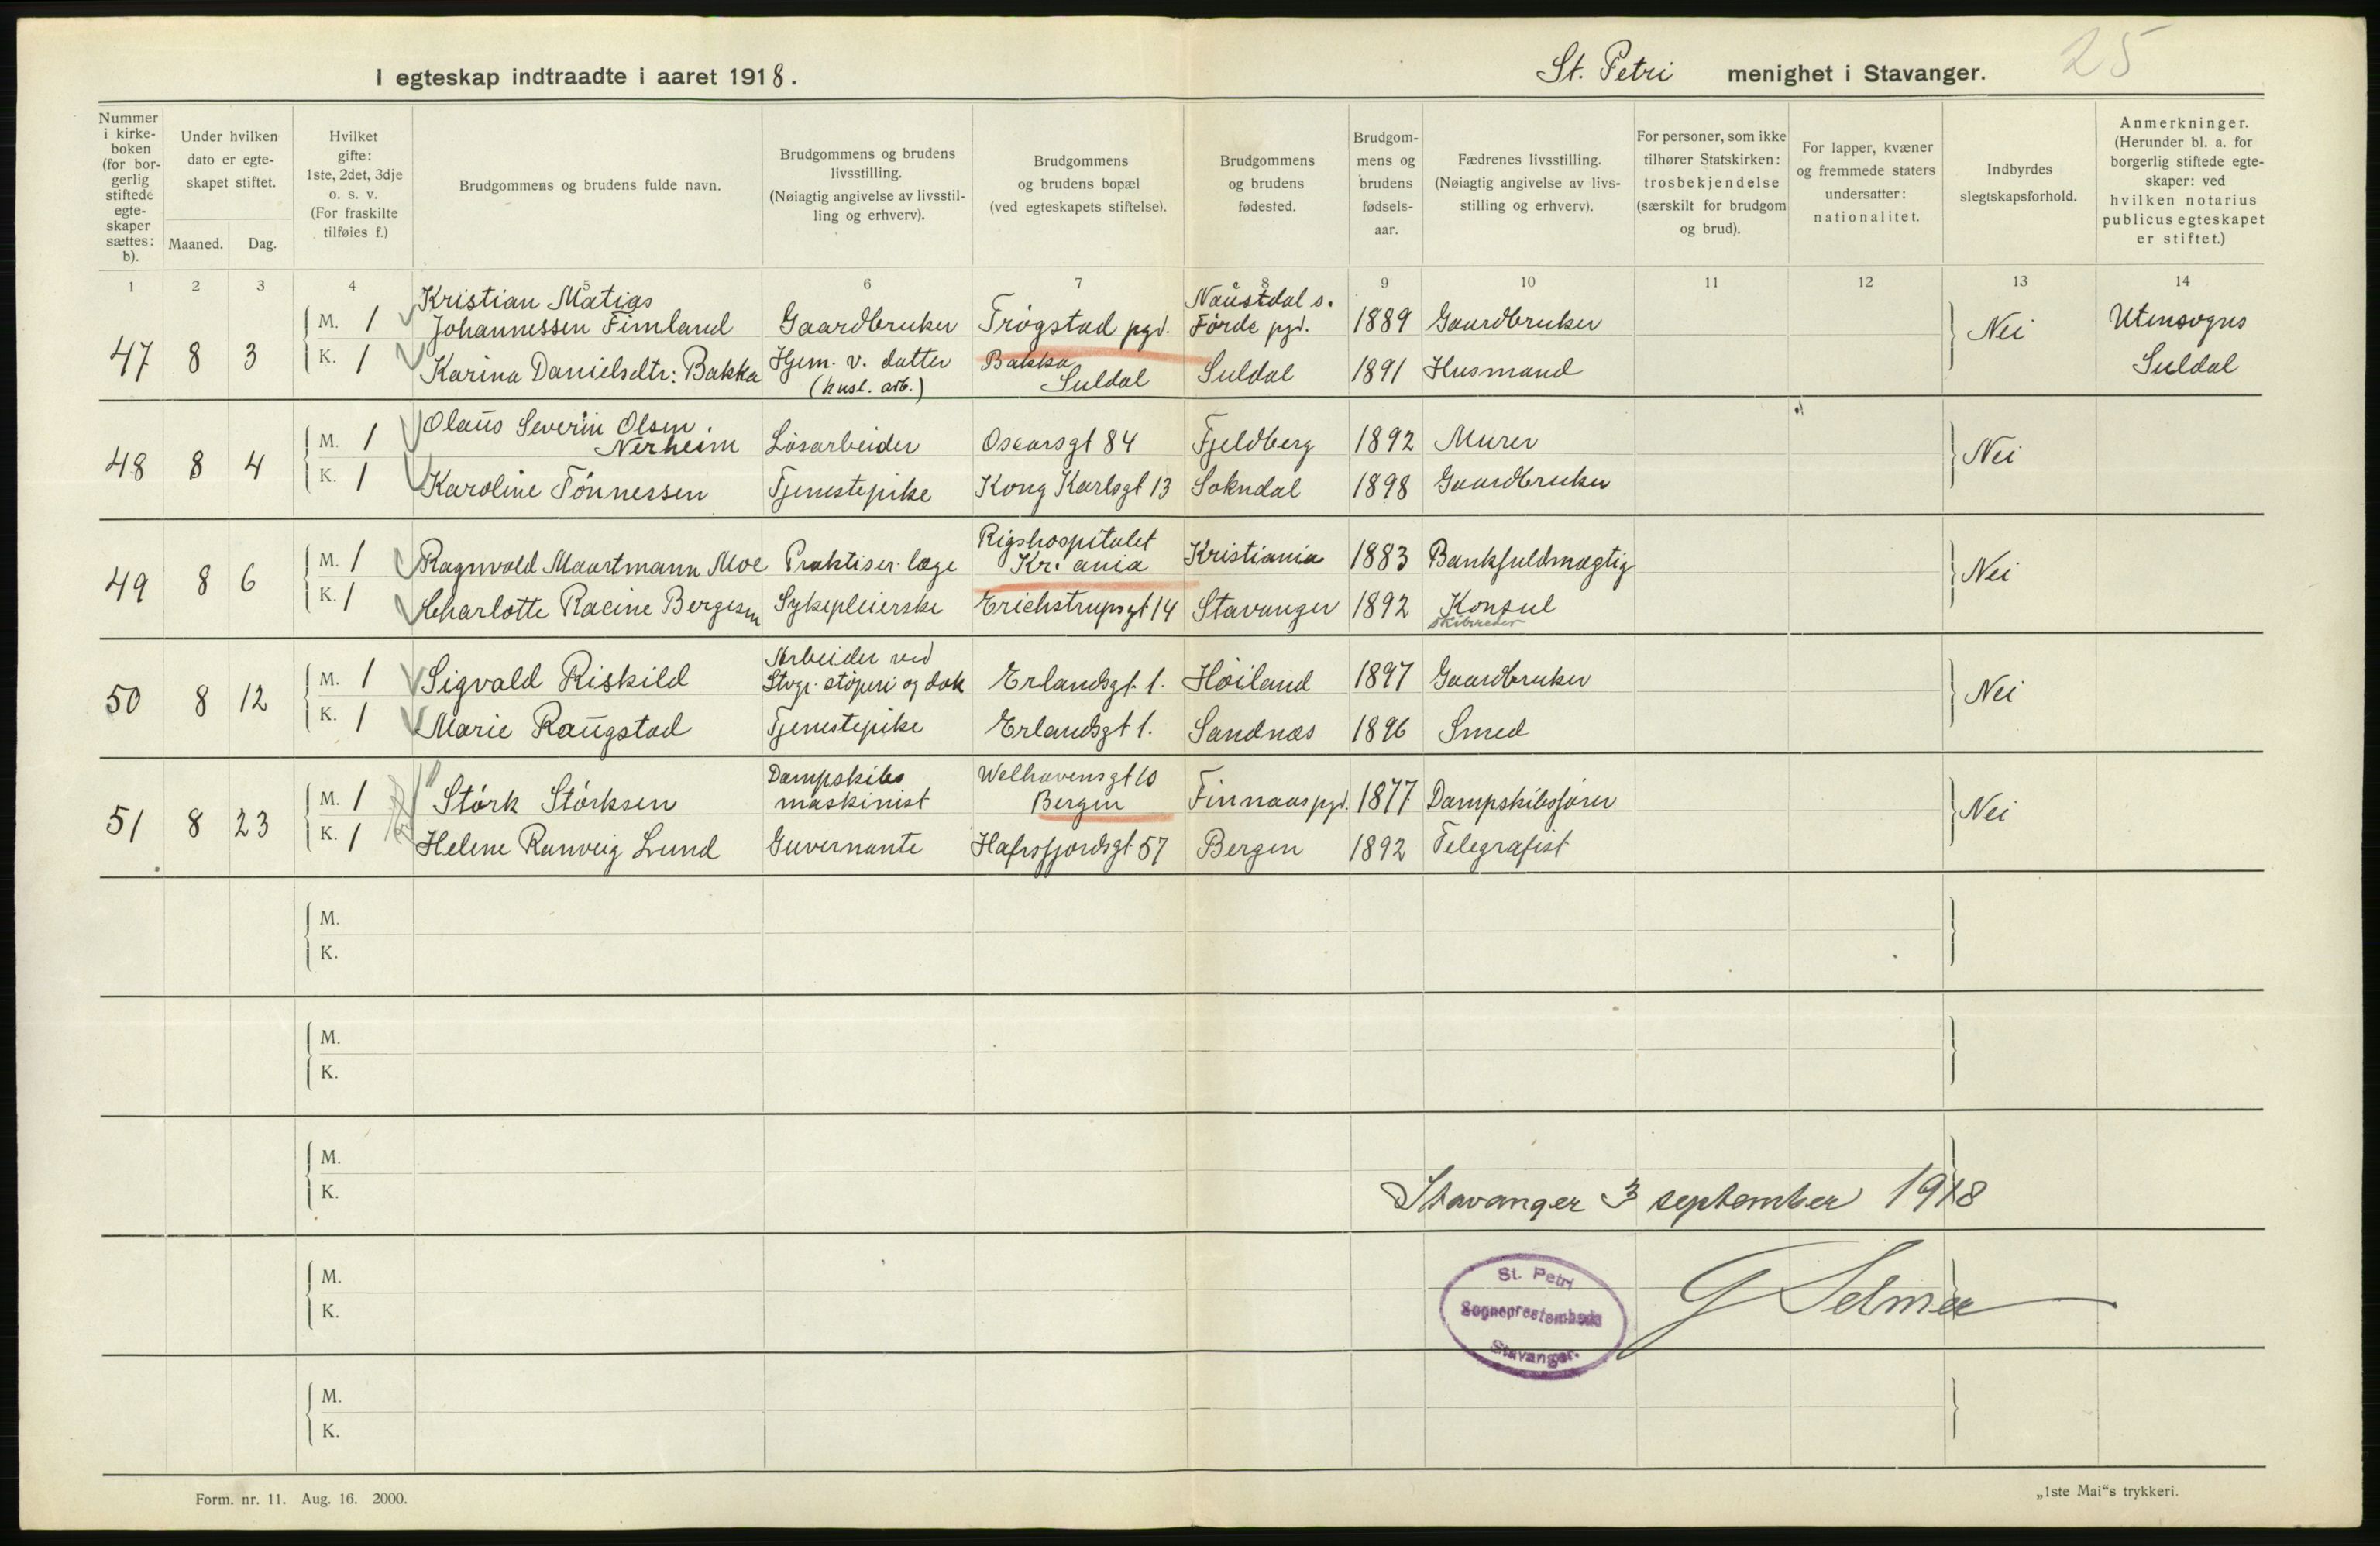 25
I egteskap indtraadte i aaret 1918.
St. Petri menighet i Stavanger.
Nummer i kirke-boken (for bor-gerlig stiftede egte-skaper sættes: b).
Under hvilken dato er egte-skapet stiftet.
Maaned. Dag.
Hvilket gifte: 1ste, 2det, 3dje o. s. v. (For fraskilte tilføies f.)
Brudgommens og brudens fulde navn.
Brudgommens og brudens livsstilling. (Nøiagtig angivelse av livsstil-ling og erhverv).
Brudgommens og brudens bopæl (ved egteskapets stiftelse).
Brudgommens og brudens fødested.
Brudgom-mens og brudens fødsels-aar.
Fædrenes livsstilling. (Nøiagtig angivelse av livs-stilling og erhverv).
For personer, som ikke tilhører Statskirken: trosbekjendelse (særskilt for brudgom og brud).
For lapper, kvæner og fremmede staters undersatter: nationalitet.
Indbyrdes slegtskapsforhold.
Anmerkninger. (Herunder bl. a. for borgerlig stiftede egte-skaper: ved hvilken notarius publicus egteskapet er stiftet.)
1 2 3 4 5 6 7 8 9 10 11 12 13 14
47 8 3
M. 1 Kristian Matias Johannessen Fimland Gaardbruker Trøgstad pgd. Naustdal s. Førde pgd. 1889 Gaardbruker
K. 1 Karina Danielsdtr: Bakka Hjem. v. datter (husl. arb.) Bakka Suldal Suldal 1891 Husmand
Nei
Utensogns Suldal
48 8 4
M. 1 Olaus Severin Olsen Nerheim Løsarbeider Oscarsgt 84 Fjeldberg 1892 Murer
K. 1 Karoline Tønnessen Tjenestepike Kong Karlsgt 13 Sokndal 1898 Gaardbruker
Nei
49 8 6
M. 1 Ragnvald Maartmann Moe Praktiser. læge Rigshospitalet Kr.ania Kristiania 1883 Bankfuldmægtig
K. 1 Charlotte Racine Bergesen Sykepleierske Erichstrupsgt 14 Stavanger 1892 Konsul
skibsreder
Nei
50 8 12
M. 1 Sigvald Riskild Arbeider ved Stvgr. støperi og dok Erlandsgt. 1. Høiland 1897 Gaardbruker
K. 1 Marie Raugstad Tjenestepike Erlandsgt 1. Sandnæs 1896 Smed
Nei
51 8 23
M. 1 Størk Størksen Dampskibs maskinist Welhavensgt 10 Bergen Finnaas pgd. 1877 Dampskibsfører
K. 1 Helene Ranveig Lund Guvernante Hafrsfjordsgt 57 Bergen 1892 Telegrafist
Nei
M.
K.
M.
K.
M.
K.
Stavanger 3 september 1918
M.
K.
St. Petri
Sogneprestembede
Stavanger.
G Selmer
M.
K.
Form. nr. 11. Aug. 16. 2000.
„1ste Mai“s trykkeri.